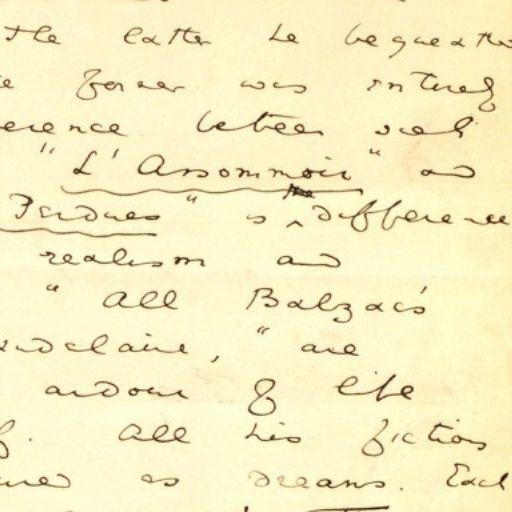 the latter he bequeathe
e former was entirely
erence between such
"L'Assommoir" and
Perdues" is the difference
realism and
"All Balzac's
audelaire, "are
ardour of life
f. All his fictions
ured as dreams. Each